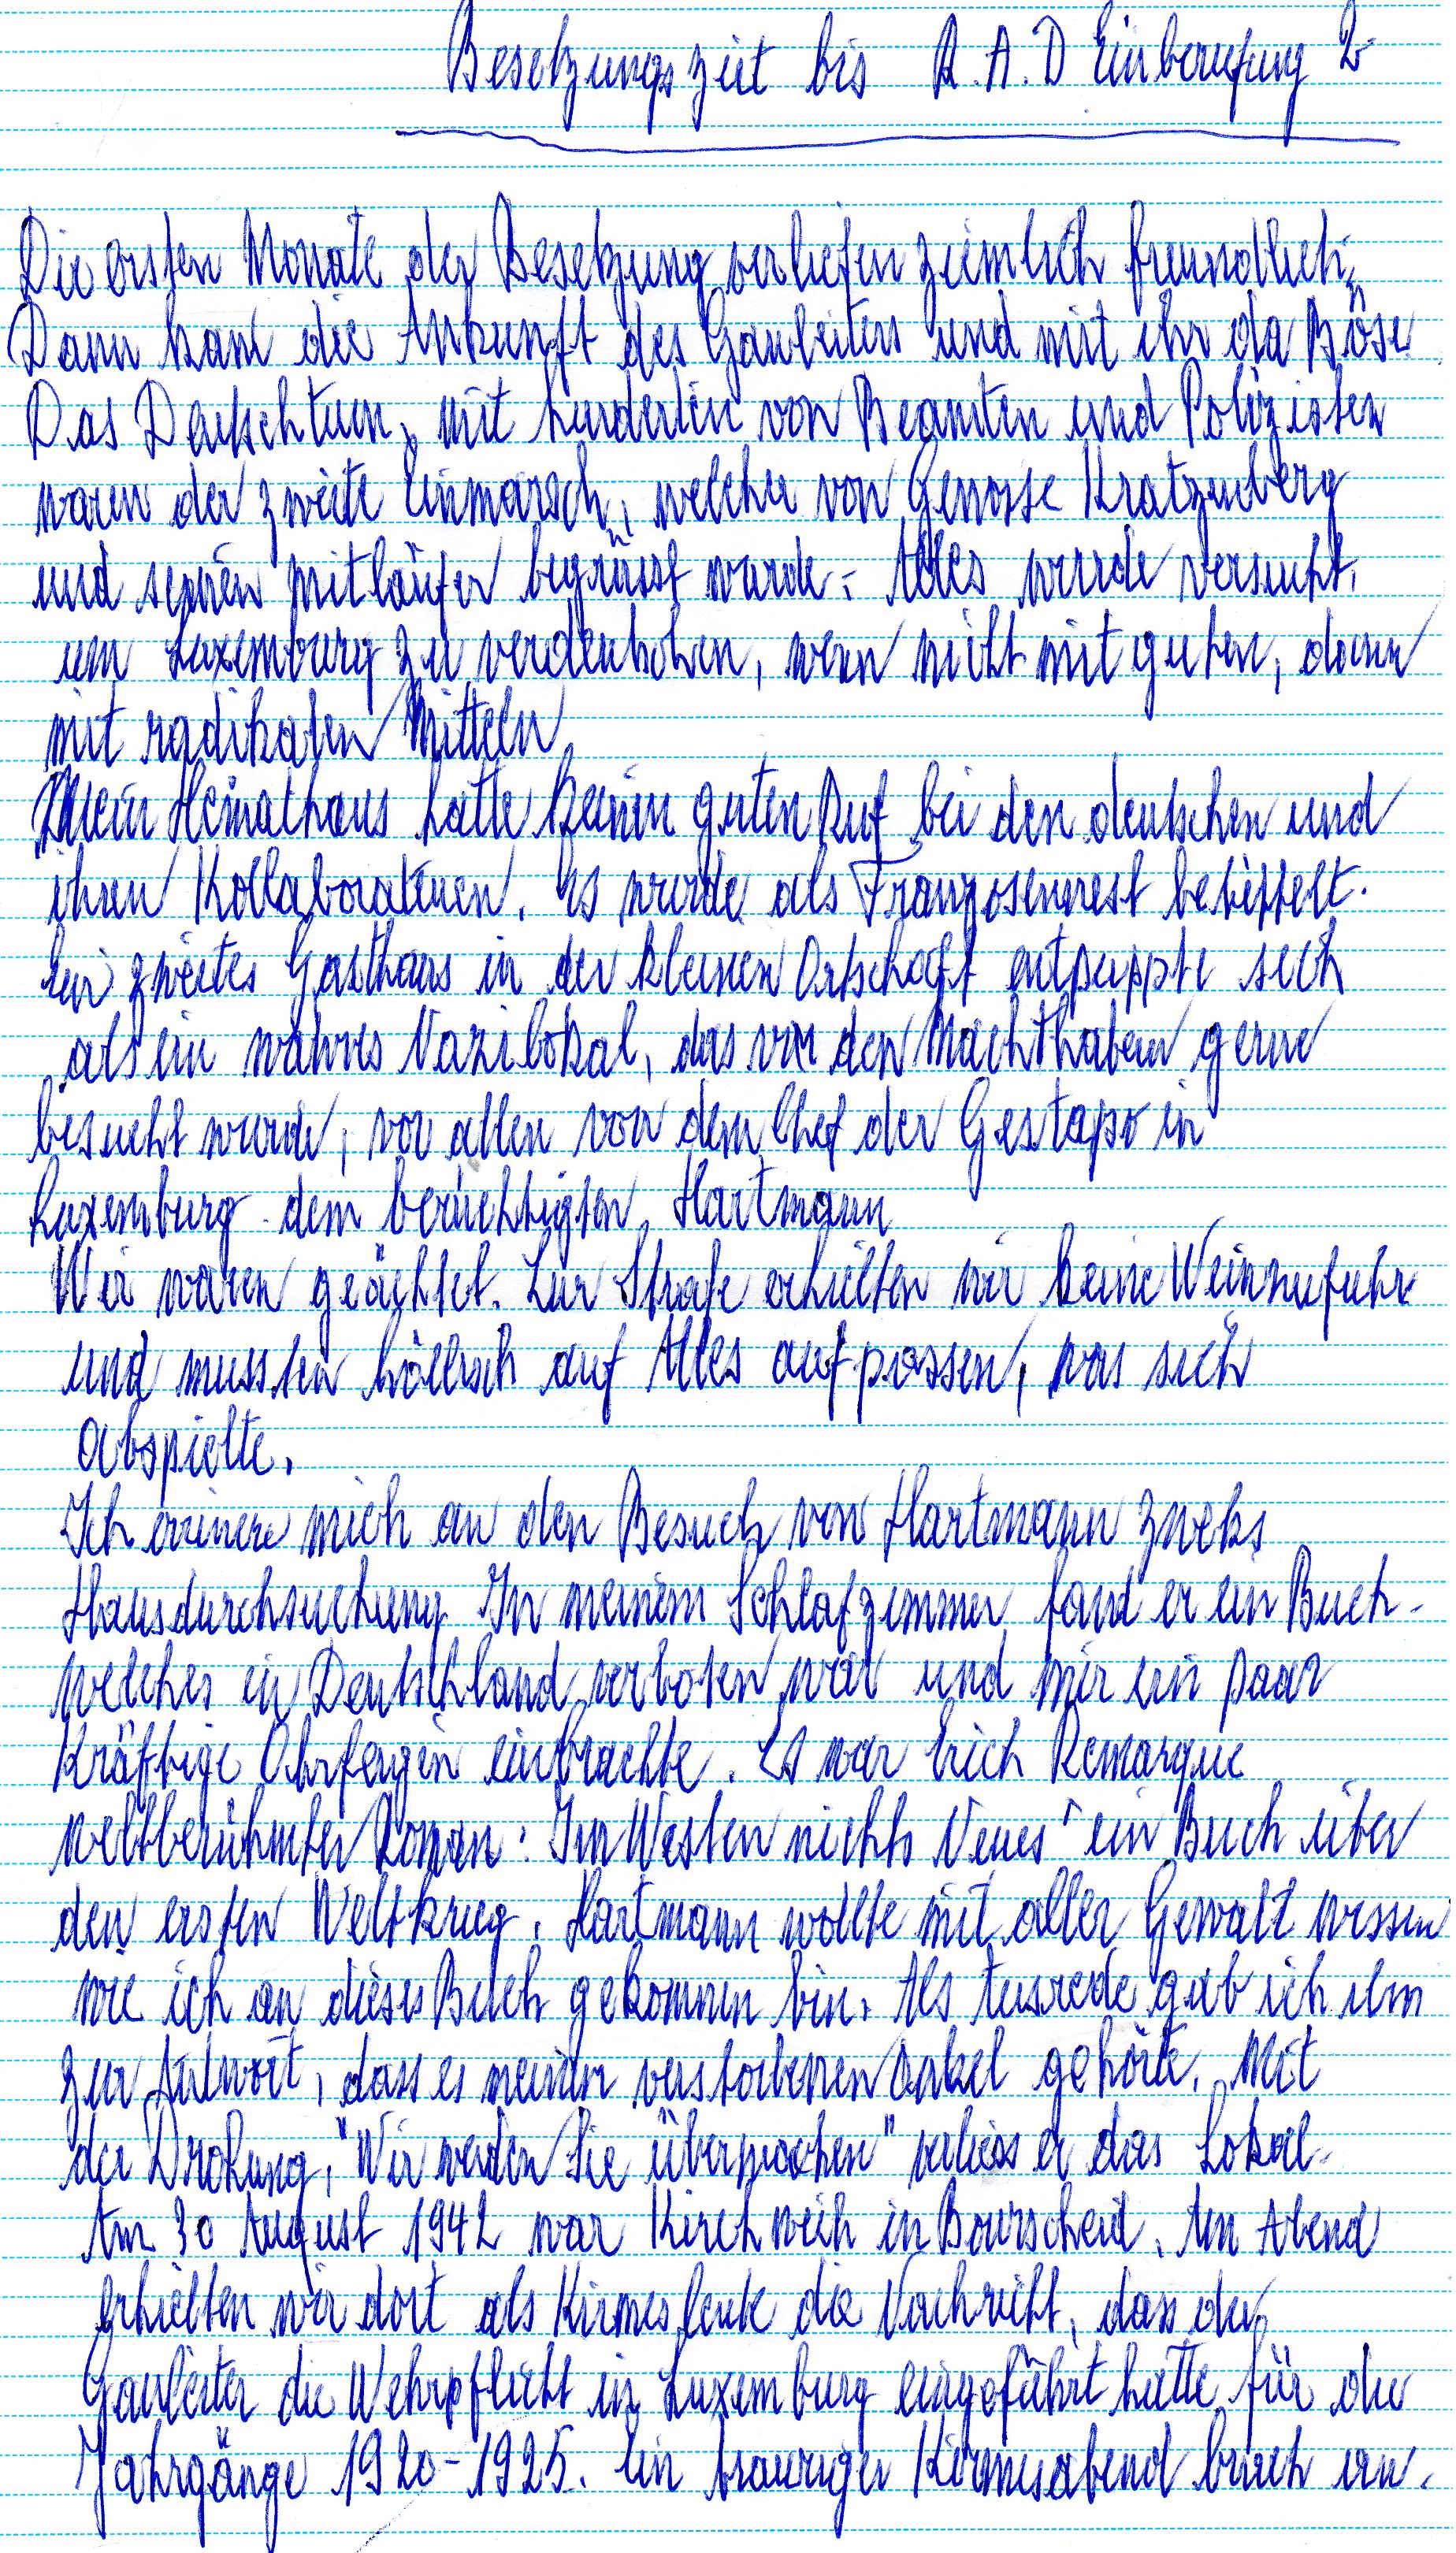 Besetzungszeit bis R.A.D Einberufung 2
Die ersten Monate der Besetzung verliefen ziemlich freundlich.
Dann kam die Ankunft des Gauleiters und mit ihr da Böse
Das Deutschtum, mit hunderten von Beamten und Polizisten
waren der zweite Einmarsch, welcher von Genosse Kratzenberg
und seinen Mitläufer begrüsst wurde. Alles wurde versucht,
um Luxemburg zu verdeutschen, wenn nicht mit guten, dann
mit radikalen Mitteln
Mein Heimathaus hatte keinen guten Ruf bei den deutschen und
ihren Kollaborateuren. Es wurde als Franzosennest betippelt.
Ein zweites Gasthaus in der kleinen Ortschaft entpuppte sich
als ein wahres Nazilokal, das von den Machthabern gerne
besucht wurde, vor allen von dem Chef der Gestapo in
Luxemburg dem berüchtigten Hartmann
Wir waren geächtet. Zur Strafe erhielten wir keine Weinzufuhr
und mussten höllisch auf Alles aufpassen, was sich
abspielte.
Ich erinere mich an den Besuch von Hartmann zweks
Hausdurchsuchung In meinem Schlafzimmer fand er ein Buch
welches in Deutschland verboten war und mir ein paar
kräftige Ohrfeigen einbrachte. Es war Erich Remarque
weltberühmter Roman: Im Westen nichts Neues" ein Buch über
den ersten Weltkrieg. Hartmann wollte mit aller Gewalt wissen
wie ich an dieses Buch gekommen bin. Als Ausrede gab ich ihm
zur Antwort, dass es meinem verstorbenen Onkel gehörte. Mit
der Drohung, "Wir werden Sie überwachen" verliess er das Lokal.
Am 30 August 1942 war Kirchweih in Bourscheid. Am Abend
erhielten wir dort als Kirmesleute die Nachricht, dass der
Gauleiter die Wehrpflicht in Luxemburg eingeführt hatte für die
Jahrgänge 1920-1925. Ein trauriger Kirmesabend brach an.